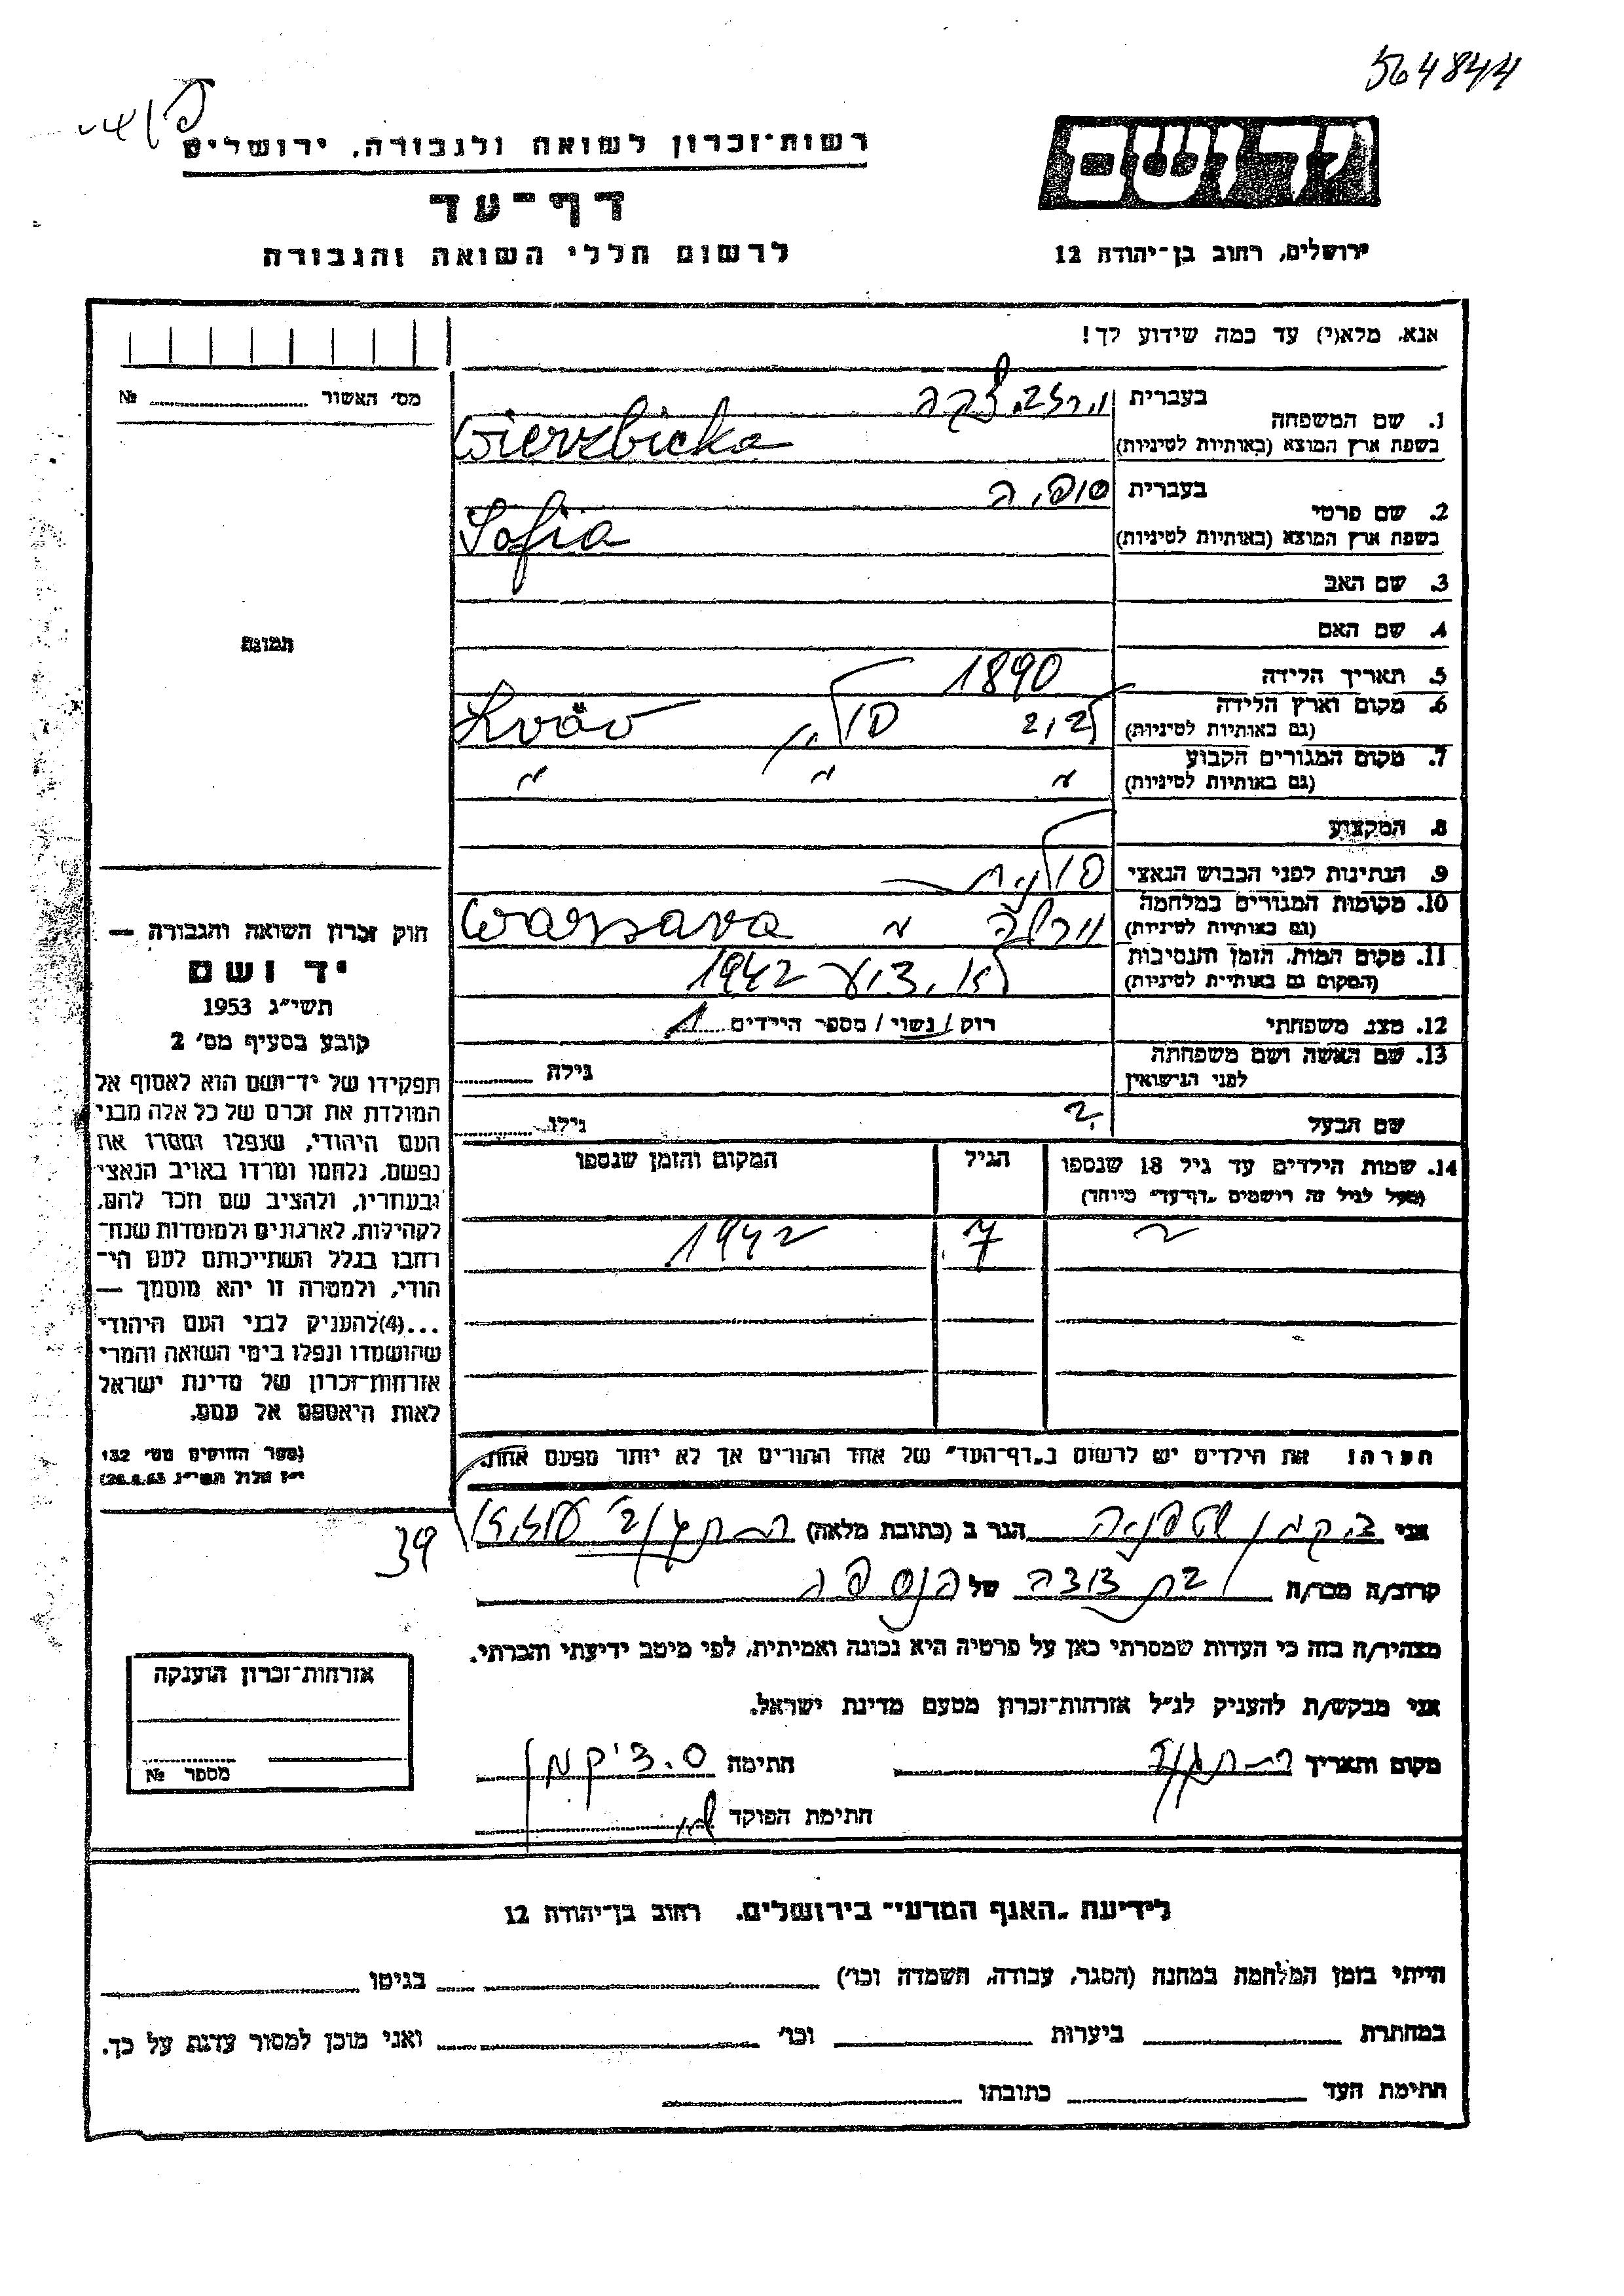 564844
יד ושם
רשות־זכרון לשואה ולגבורה, ירושלים
דף־עד
לרשום חללי השואה והגבורה
ירושלים, רחוב בן־יהודה 12
אנא, מלא(י) עד כמה שידוע לך!
מס' האשור № 
1. שם המשפחה
בעברית
בשפת ארץ המוצא (באותיות לטיניות) Wierzbicka
2. שם פרטי
בעברית סופיה
בשפת ארץ המוצא (באותיות לטיניות) Sofia
3. שם האב
4. שם האם
תמונה
5. תאריך הלידה 1890
6. מקום וארץ הלידה
(גם באותיות לטיניות) לבוב פולין Lvóv
7. מקום המגורים הקבוע
(גם באותיות לטיניות) " " "
8. המקצוע
9. הנתינות לפני הכבוש הנאצי פולנית
10. מקומות המגורים במלחמה
(גם באותיות לטיניות) ורשה " Warsawa
11. מקום המות, הזמן והנסיבות
(המקום גם באותיות לטיניות) לא ידוע 1942
12. מצב משפחתי רווק / נשוי / מספר הילדים 1
13. שם האשה ושם משפחתה
לפני הנישואין
גילה
שם הבעל ?
גילו
14. שמות הילדים עד גיל 18 שנספו
(מעל לגיל זה רושמים "דף־עד" מיוחד)
הגיל
המקום והזמן שנספו
? 7 1942
הערה: את הילדים יש לרשום ב"דף־העד" של אחד ההורים אך לא יותר מפעם אחת.
חוק זכרון השואה והגבורה —
יד ושם
תשי"ג 1953
קובע בסעיף מס' 2
תפקידו של יד־ושם הוא לאסוף אל
המולדת את זכרם של כל אלה מבני
העם היהודי, שנפלו ומסרו את
נפשם, נלחמו ומרדו באויב הנאצי
ובעוזריו, ולהציב שם וזכר להם,
לקהילות, לארגונים ולמוסדות שנח־
רבו בגלל השתייכותם לעם הי־
הודי, ולמטרה זו יהא מוסמך —
...(4) להעניק לבני העם היהודי
שהושמדו ונפלו בימי השואה והמרי
אזרחות־זכרון של מדינת ישראל
לאות היאספם אל עמם.
(ספר החוקים מס' 132
י"ז אלול תשי"ג 28.8.53)
39
אני הגר ב (כתובת מלאה)
קרוב/ה מכר/ה בת דודה של הנספה
מצהיר/ה בזה כי העדות שמסרתי כאן על פרטיה היא נכונה ואמיתית, לפי מיטב ידיעתי והכרתי.
אני מבקש/ת להעניק לנ"ל אזרחות־זכרון מטעם מדינת ישראל.
מקום ותאריך חתימה
חתימת הפוקד
אזרחות־זכרון הוענקה
מספר №
לידיעת "האגף המדעי" בירושלים, רחוב בן־יהודה 12
הייתי בזמן המלחמה במחנה (הסגר, עבודה, השמדה וכו') בגיטו
במחתרת ביערות וכו' ואני מוכן למסור עדות על כך.
חתימת העד כתובתו